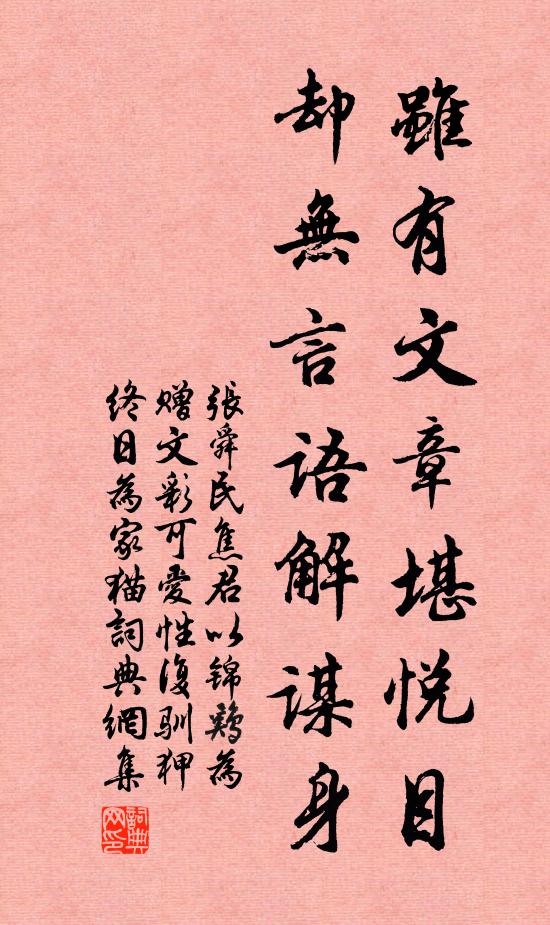 雖有文章堪悅目
却無言語解謀身
張舜民焦君以錦鷄為
贈文彩可愛性復馴狎
終日為家猫詞典網集
詞典
网印